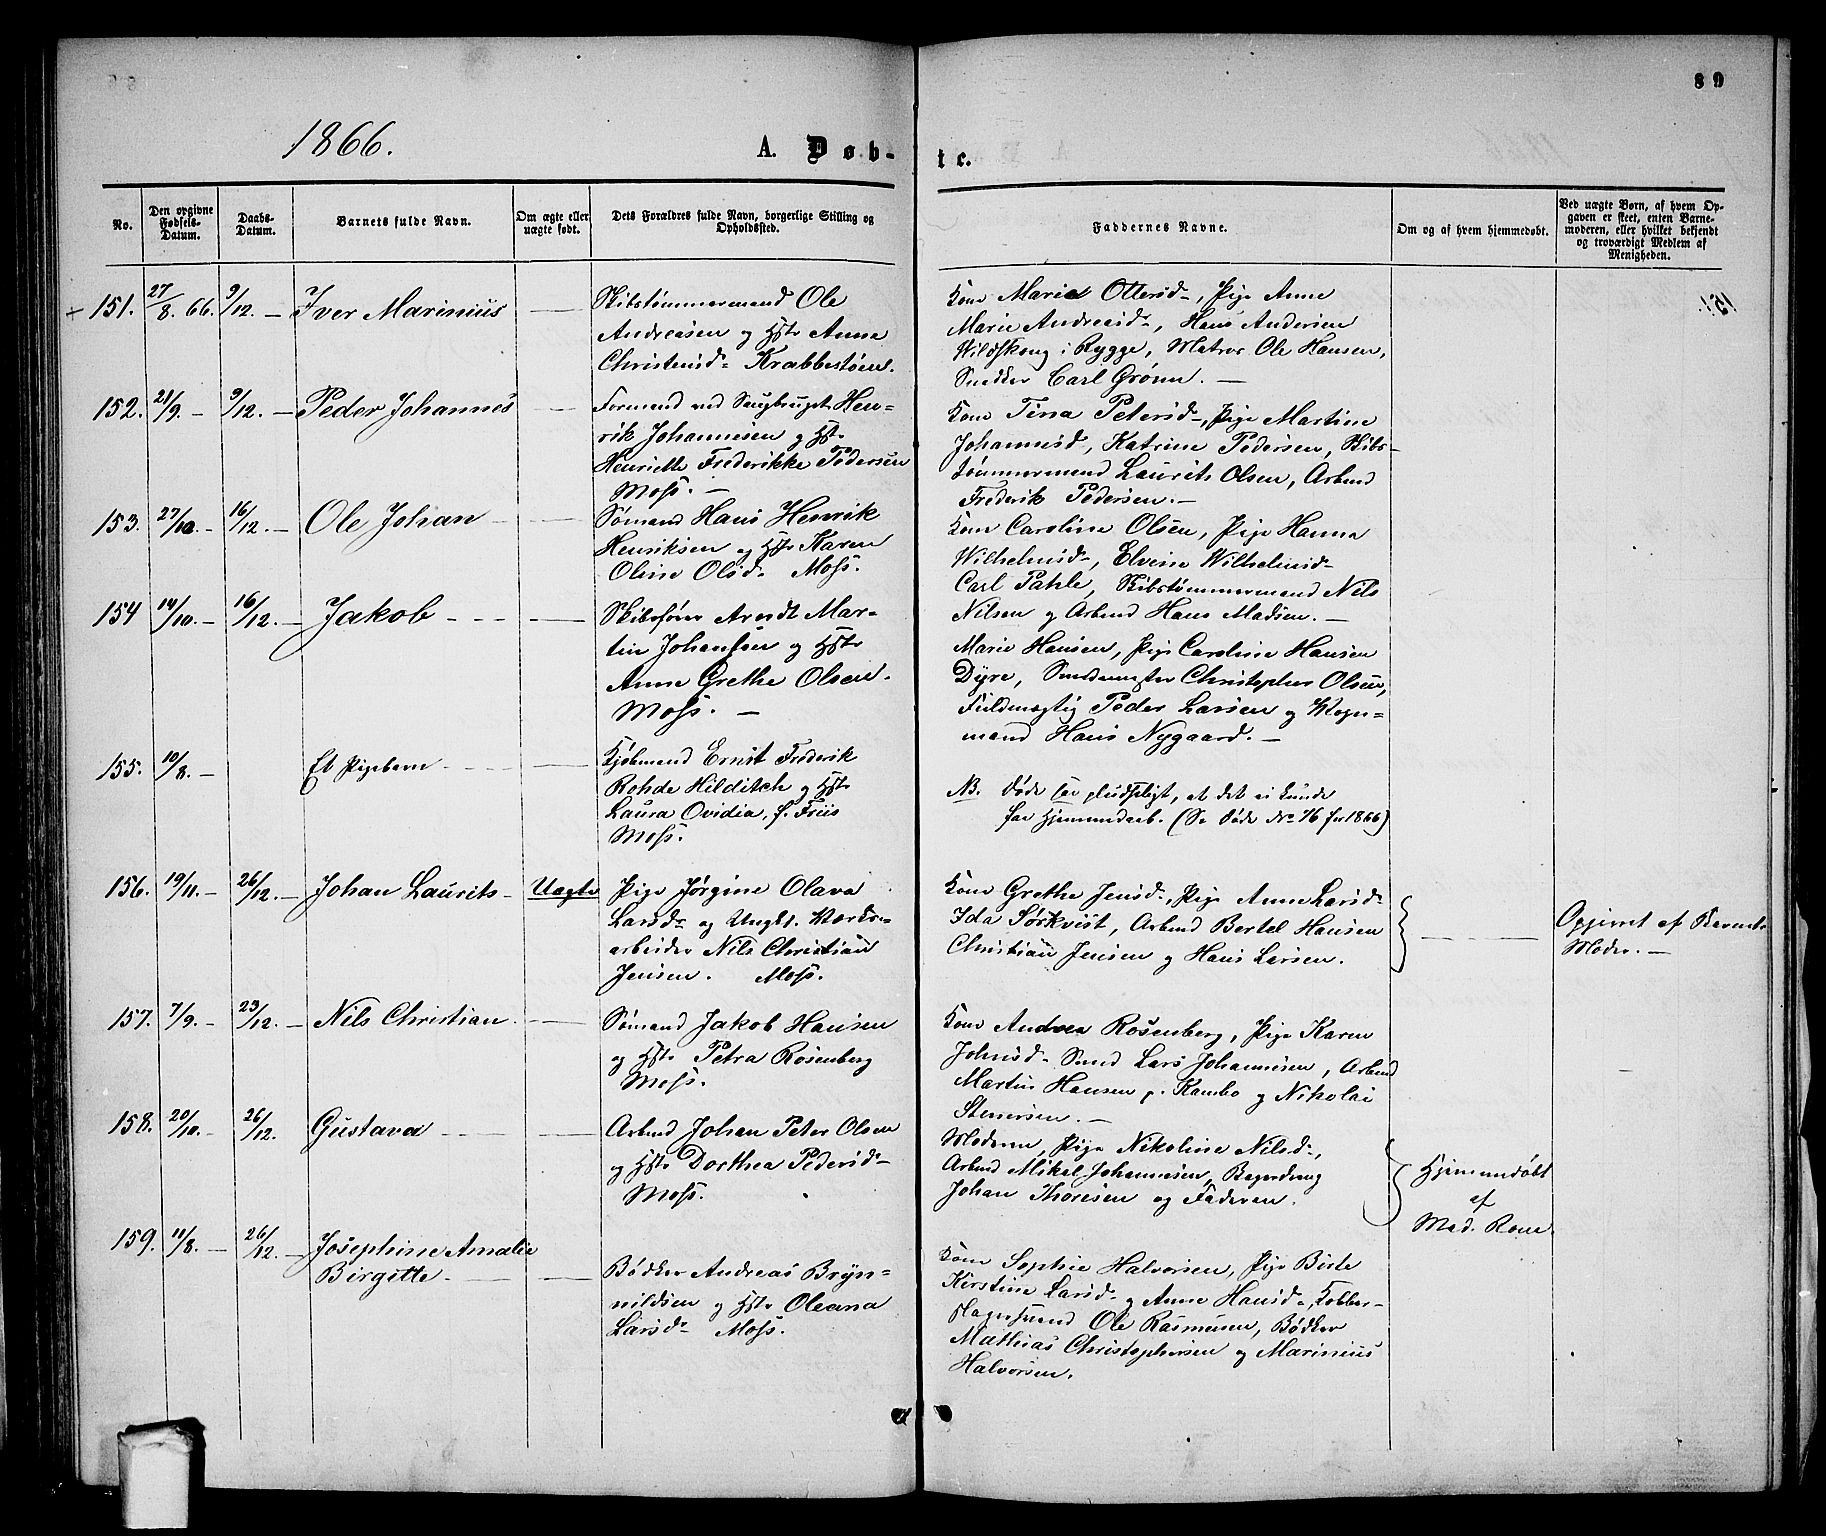 89
1866.
A. Døb-
te.
No.
Den opgivne Fødsels-Datum.
Daabs-Datum.
Barnets fulde Navn.
Om ægte eller uægte født.
Dets Forældres fulde Navn, borgerlige Stilling og Opholdssted.
Faddernes Navne.
Om og af hvem hjemmedøbt.
Ved uægte Børn, af hvem Opgaven er skeet, enten Barnemoderen, eller hvilket bekjendt og troværdigt Medlem af Menigheden.
151. 27/8. 66. 9/12. — Iver Marinius —
Skibstømmermand Ole
Andreasen og Hstr Anna
Christensd- Krabbestøen.
Kone Maria Ottersd-, Pige Anne
Marie Andreasd-, Hans Andersen
Vildskoug i Rygge, Matros Ole Hansen,
Snedker Carl Grønn. —
152. 21/9. — 9/12. — Peder Johannes —
Formand ved Saugbruget Hen-
rik Johannesen og Hstr
Henriette Frederikke Pedersen
Moss. —
Kone Tina Petersd-, Pige Martine
Johannesd, Katrine Pedersen, Skibs-
tømmermand Laurits Olsen, Arbmd
Frederik Pedersen. —
153. 27/10. — 16/12. — Ole Johan —
Sømand Hans Henrik
Henriksen og Hstr Karen
Oline Olsd- Moss.
Kone Caroline Olsen, Pige Hanna
Wilhelmsd-, Elvine Wilhelmsd-
Carl Pahle, Skibstømmermand Nils
Nilsen og Arbmd Hans Madsen. —
154 14/10. — 16/12. — Jakob —
Skibsfører Arndt Mar-
tin Johansen og Hstr
Anne Grethe Olsen.
Moss. —
Marie Hansen, Pige Caroline Hansen
Dyre, Smedmester Christopher Olsen,
Fuldmægtig Peder Larsen og Vogn-
mand Hans Nygaard. —
155. 10/8. — Et Pigebarn —
Kjøbmand Ernst Frederik
Rohde Hilditch og Hstr
Laura Ovidia, f. Friis
Moss.
NB. Døde saa pludseligt, at det ei kunde
faa Hjemmedaab. (Se Døde No 76 for 1866)
156. 19/11. — 26/12. — Johan Laurits — Uægte
Pige Jørgine Olava
Larsdr og Ungk. Værks-
arbeider Nils Christian
Jensen. Moss.
Kone Grethe Jensd-, Pige Anne Larsd-
Ida Sørkvist, Arbmd Bertel Hansen
Christian Jensen og Hans Larsen.
Opgivet af Barnets
Moder. —
157. 7/9. — 23/12. — Nils Christian. —
Sømand Jakob Hansen
og Hstr Petra Rosenberg
Moss.
Kone Andrea Rosenberg, Pige Karen
Johnsd- Smed Lars Johannesen, Arbmd
Martin Hansen p. Kambo og Nikolai
Stenersen. —
158. 20/10. — 26/12. Gustava —
Arbmd Johan Peter Olsen
og Hstr Dorthea Pedersd-
Moss.
Moderen, Pige Nikoline Nilsd-,
Arbmd Mikal Johannesen, Bagerdreng
Johan Thoresen og Faderen.
Hjemmedøbt
af
Mad. Rone
159. 11/8. — 26/12. — Josephine Amalie
Birgitte —
Bødker Andreas Bryn-
nildsen og Hstr Oleana
Larsd- Moss.
Kone Sophie Halvorsen, Pige Birte
Kirstine Larsd- og Anne Hansd-, Kobber-
slagersvend Ole Rasmusen, Bødker
Mathias Christophersen og Marinius
Halvorsen.